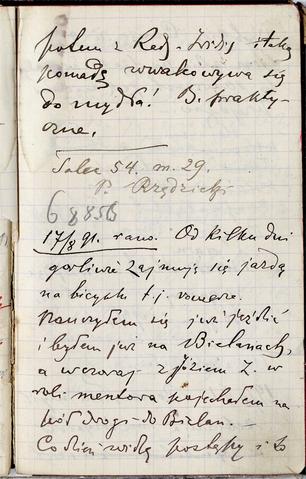 potem z Red.
pomadę wwakowywa się
do mydła! B. prakty-
czne.
Solec 54. m. 29.
P. Rządzicki
68856
17/8 91. rano. Od kilku dni
gorliwie zajmuję się jazdą
na bicyklu t.j. rowerze.
Nauczyłem się już jeździć
i byłem już na Bielanach,
a wczoraj z Józiem Z. w
roli mentora pojechałem na
pół drogi do Bielan. –
Co dzień widzę postępy i to